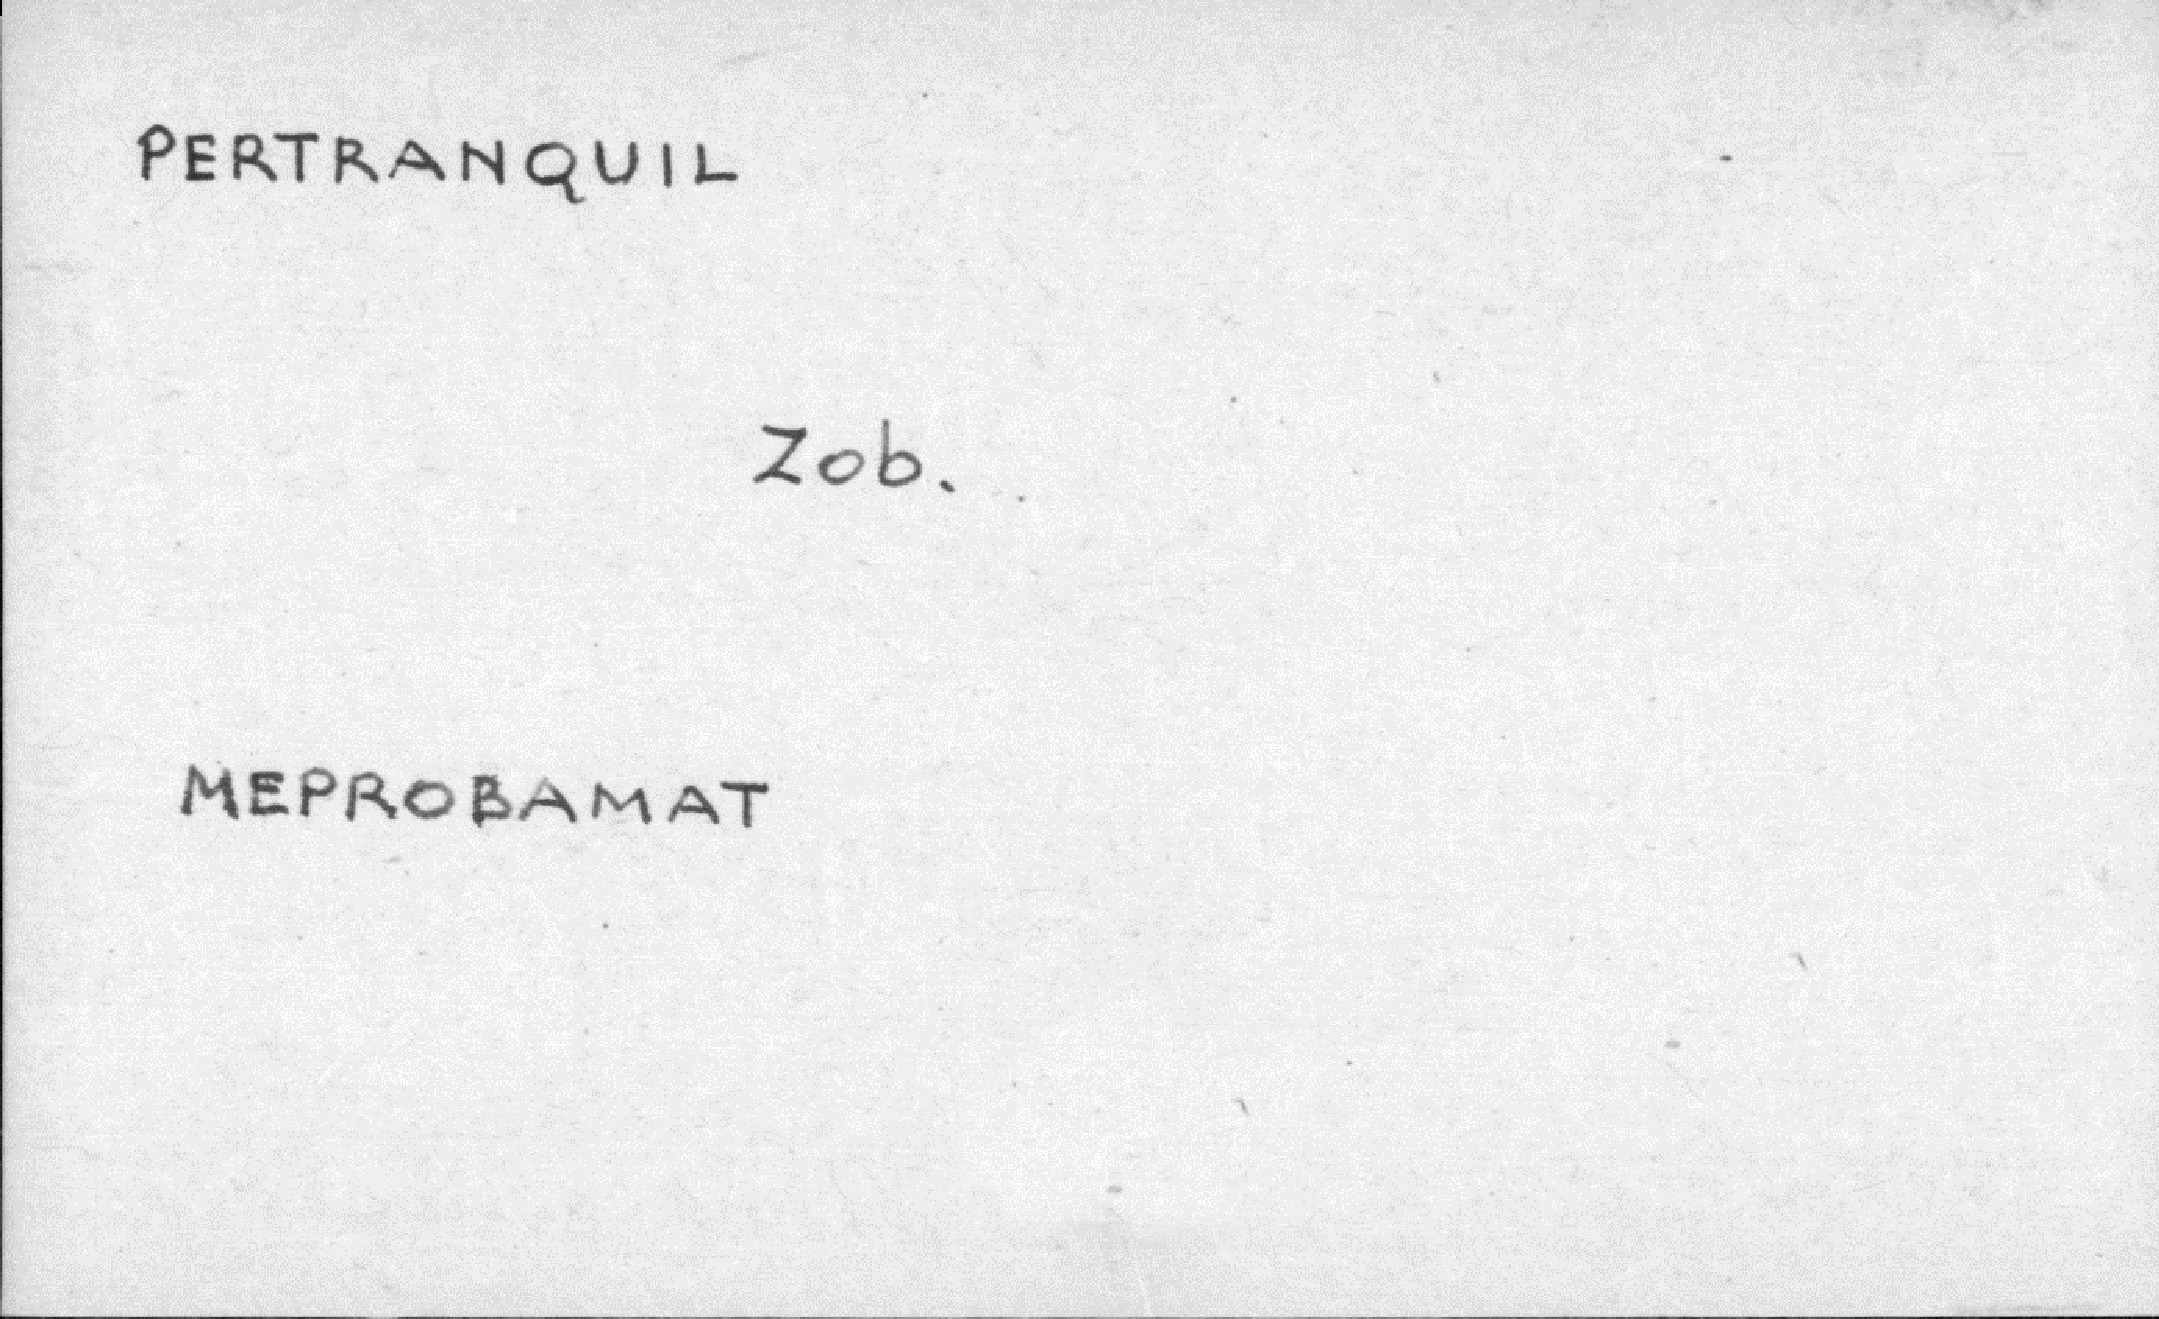 PERTRANQUIL
Zob.
MEPROBAMAT